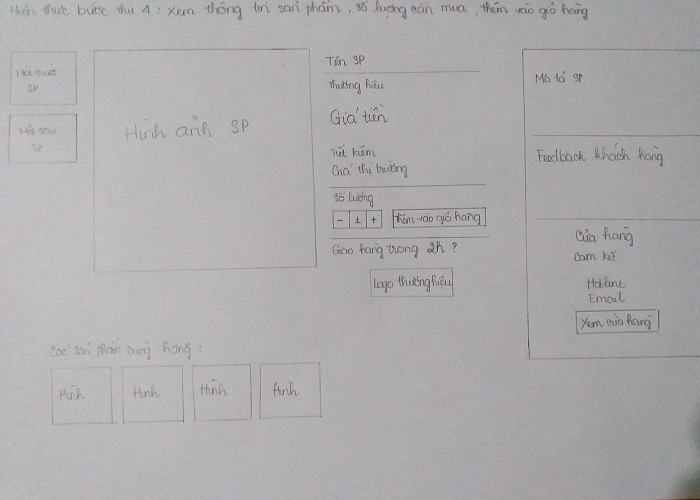 Hiện thực bước thứ 4 : xem thông tin sản phẩm , số lượng cần mua , thêm vào giỏ hàng
Mặt trước
SP
Mặt sau
SP
Hình ảnh SP
Tên SP
Thương hiệu
Giá tiền
Tiết kiệm
Giá thị trường
Số lượng
- 1 + Thêm vào giỏ hàng
Giao hàng trong 2h ?
Logo thương hiệu
Mô tả SP
Feedback khách hàng
Cửa hàng
cam kết
Hotline
Email
Xem cửa hàng
Các sản phẩm cùng hãng :
Hình Hình Hình Hình